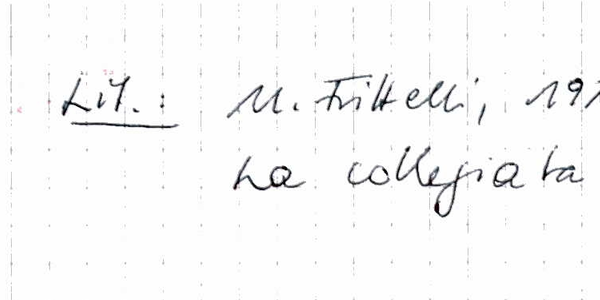 Lit.: M. Frittelli, 19
La collegiata